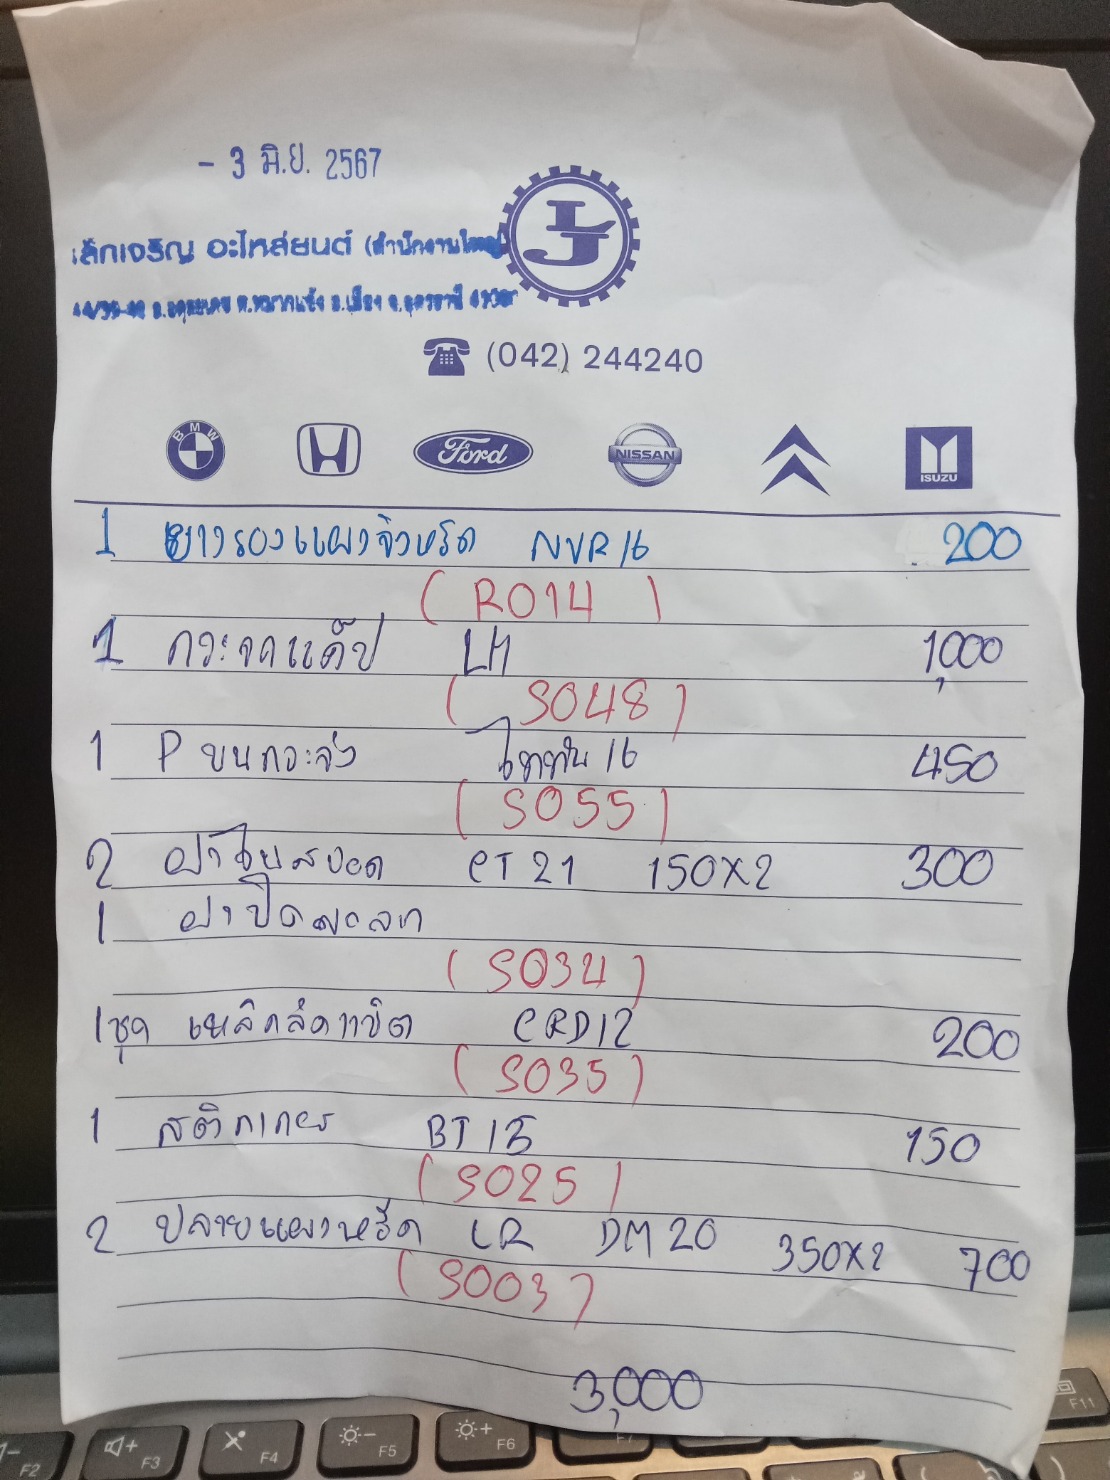 - 3 มิ.ย. 2567
LJ
เล็กเจริญ อะไหล่ยนต์ (สำนักงานใหญ่)
ต.หมากแข้ง อ.เมือง จ.อุดรธานี
(042) 244240
BMW Ford NISSAN ISUZU
1 ยางรองแผงจิ้งหรีด NVR16 200
(R014)
1 กระจกแค๊ป LH 1,000
(S048)
1 P ขนกระจัง ไททัน 16 450
(S055)
2 ฝาไฟสปอต CT21 150X2 300
1 ฝาปิด
(S034)
1ชุด เหล็กล๊คแข็ต CRD12 200
(S035)
1 สติกเกอร์ BT15 150
(S025)
2 ปลายแผงหรีด LR DM20 350X2 700
(S003)
3,000
F2 F3 F4 F5 F6 F7 F11